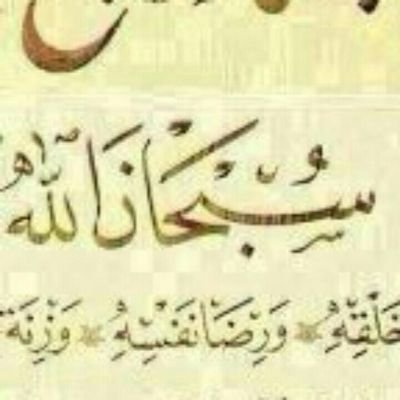 سُبْحَانَ اللّٰهِ
خَلْقِهِ * وَرِضَا نَفْسِهِ * وَزِنَةَ